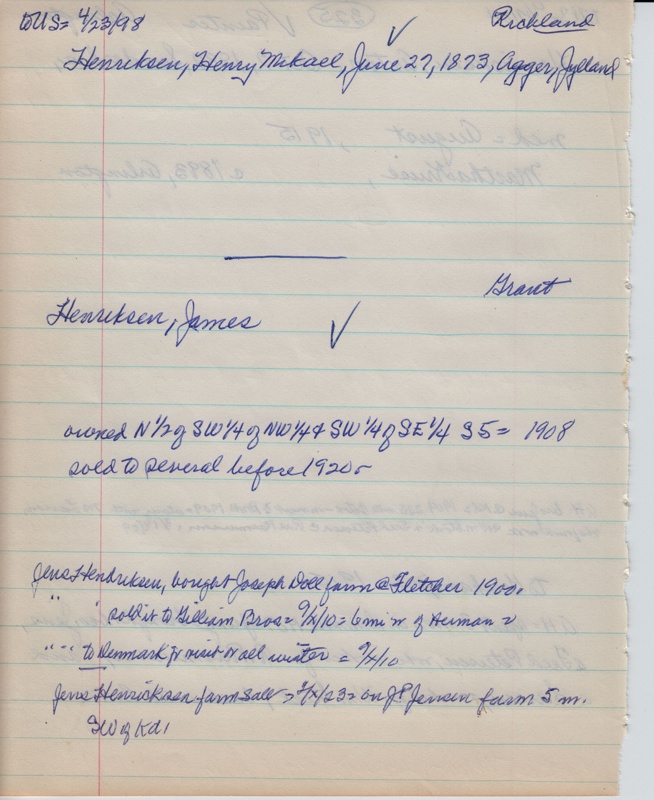 to US = 4/23/98
Richland
Henriksen, Henry Mikael, June 27, 1873, Agger, Jylland
Grant
Henriksen, James
owned N 1/2 of SW 1/4 of NW 1/4 & SW 1/4 of SE 1/4 S5 = 1908
sold to several before 1920
Jens Hendriksen, bought Joseph Doll farm @ Fletcher 1900.
" " sold it to Gilliam Bros = 9/x/10 = 6 mi n of Herman =
" " " to Denmark for visit all winter = 9/x/10
Jens Henricksen farm sale = /x/23 = on J.P. Jensen farm 5 m.
SW of Kd.